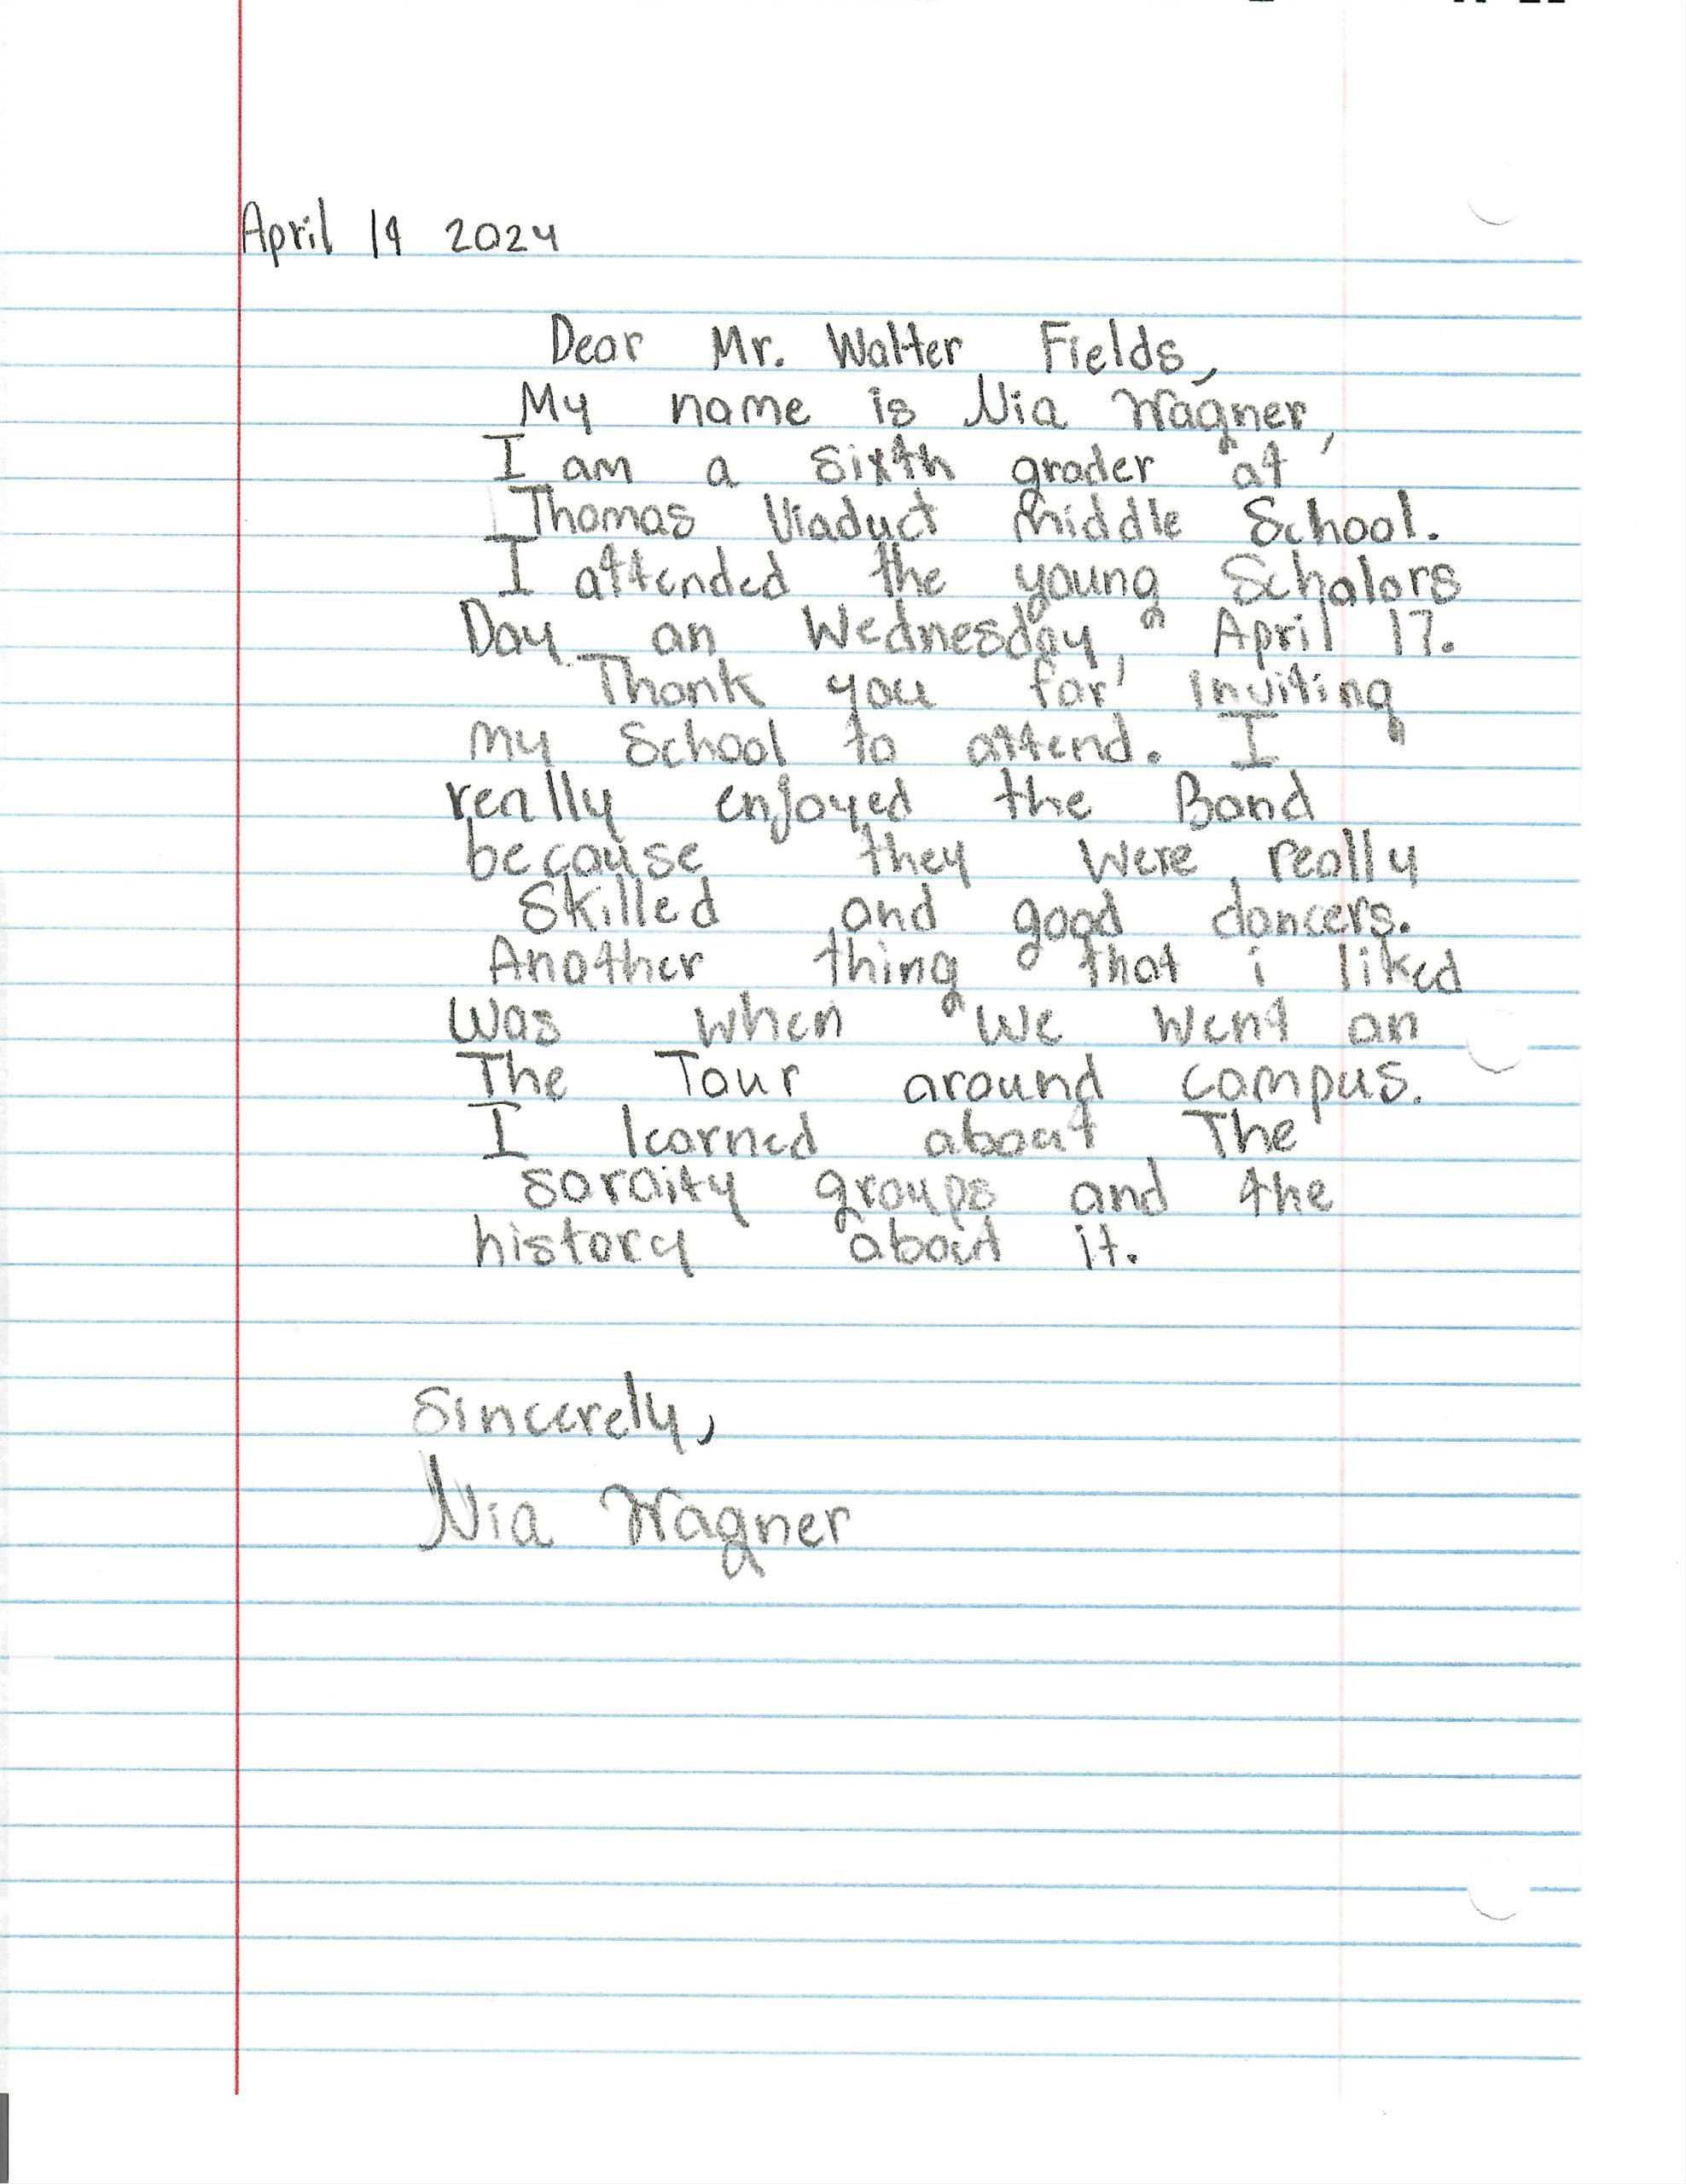 April 19 2024
Dear Mr. Walter Fields,
My name is Nia Wagner,
I am a sixth grader at
Thomas Viaduct middle School.
I attended the young Scholars
Day on Wednesday, April 17.
Thank you for inviting
my School to attend. I
really enjoyed the Band
because they were really
Skilled and good dancers.
Another thing that i liked
was when we went on
The Tour around campus.
I learned about The
soroity groups and the
history about it.
Sincerely,
Nia Wagner